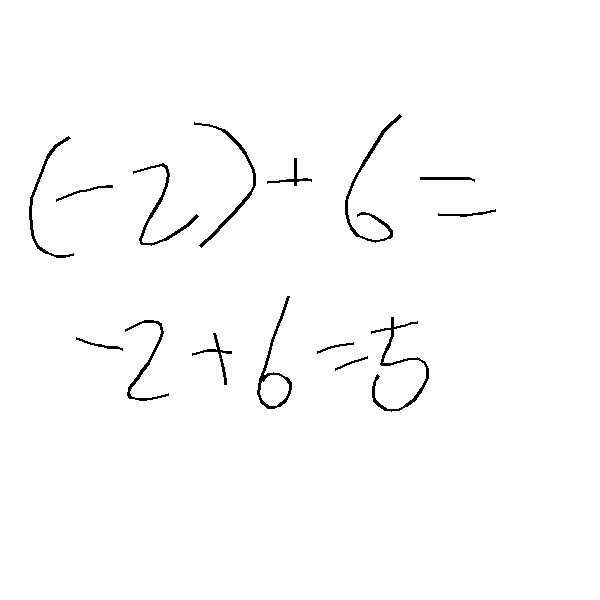 (-2) + 6 =
-2 + 6 = 5